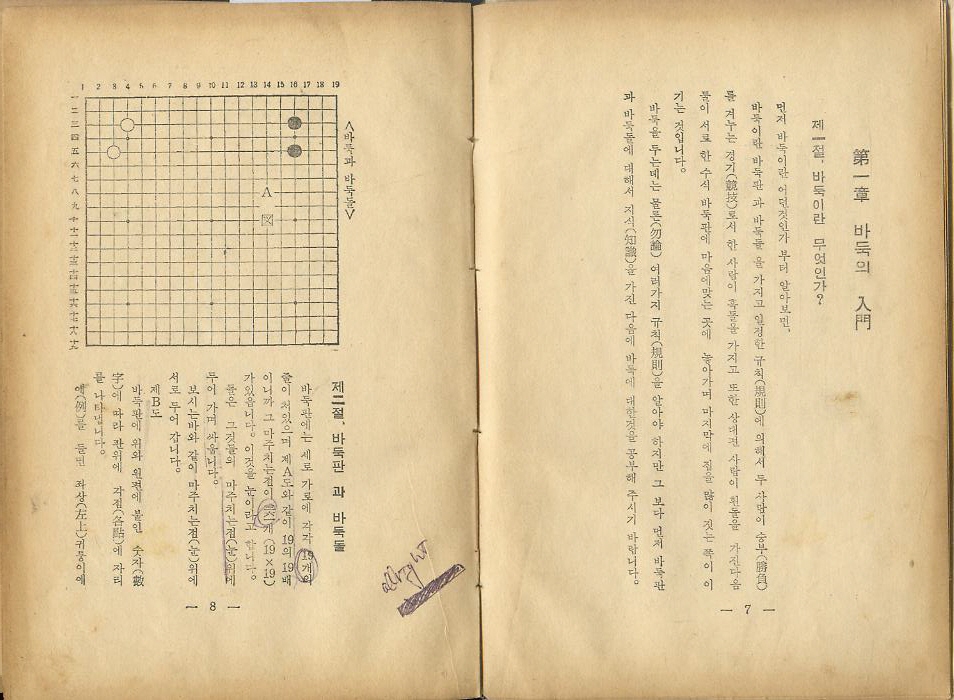 第一章 바둑의 入門
제一절, 바둑이란 무엇인가?
먼저 바둑이란 어떤것인가 부터 알아보면,
바둑이란 바둑판 과 바둑돌 을 가지고 일정한 규칙(規則)에 의해서 두 사람이 승부(勝負)
를 겨누는 경기(競技)로서 한 사람이 흑돌을 가지고 또한 상대편 사람이 흰돌을 가진다음
둘이 서로 한 수식 바둑판에 마음에맞는 곳에 놓아가며 마지막에 집을 많이 짓는 쪽이 이
기는 것입니다.
바둑을 두는데는 물론(勿論) 여러가지 규칙(規則)을 알아야 하지만 그 보다 먼저 바둑판
과 바둑돌에 대해서 지식(知識)을 가진 다음에 바둑에 대한것을 공부해 주시기 바랍니다.
— 7 —
<바둑과 바둑돌>
1 2 3 4 5 6 7 8 9 10 11 12 13 14 15 16 17 18 19
一 二 三 四 五 六 七 八 九 十 十一 十二 十三 十四 十五 十六 十七 十八 十九
A
제二절, 바둑판 과 바둑돌
바둑판에는 세로 가로에 각각 19개의
줄이 처있으며 제A도와 같이 19의 19배
이니까 그 마주치는점이 개(19×19)
가있읍니다. 이것을 눈이라고 합니다.
돌은 그것들의 마주치는점(눈)위에
두어 가며 싸웁니다.
보시는바와 같이 마주치는점(눈)위에
서로 두어 갑니다.
제B도
바둑판에 위와 왼편에 붙인 숫자(數
字)에 따라 칸위에 각점(各點)에 자리
를 나타냅니다.
예(例)를 들면 좌상(左上)귀퉁이에
— 8 —
allright